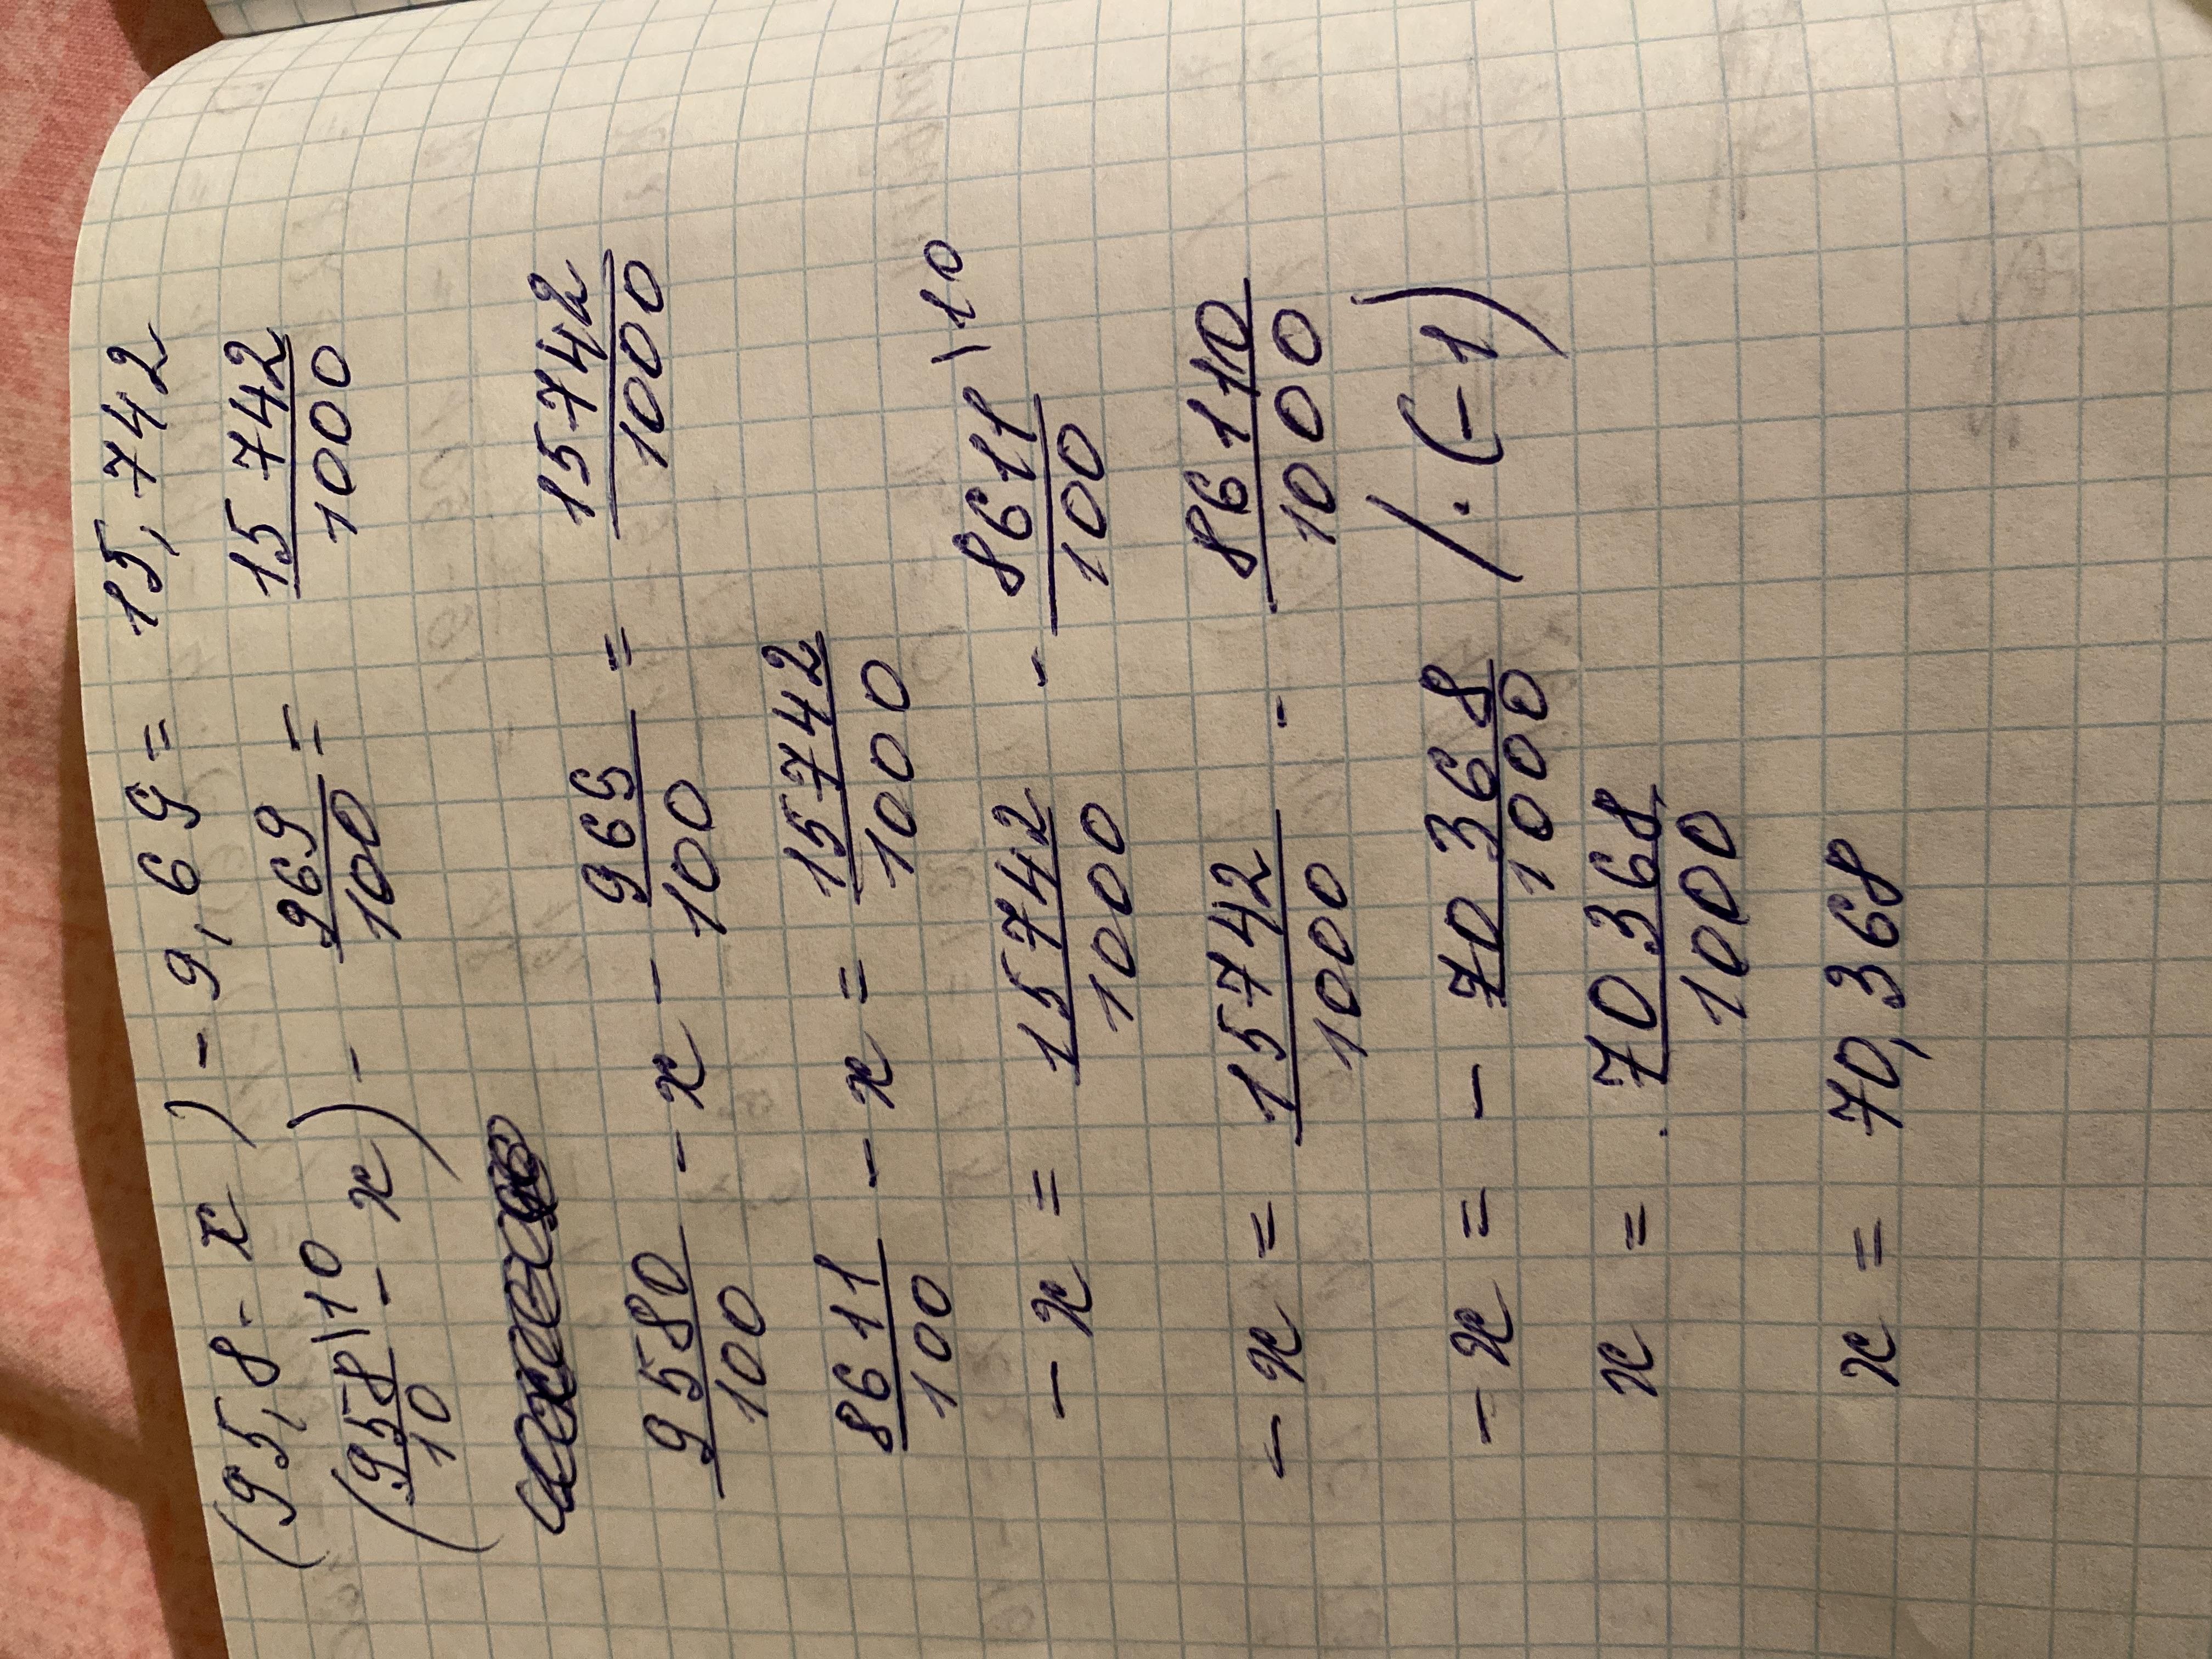 (95,8 - x) - 9,69 = 15,742
(958/10 \10 - x) - 969/100 = 15742/1000
9580/100 - x - 969/100 = 15742/1000
8611/100 - x = 15742/1000
- x = 15742/1000 - 8611/100 \10
- x = 15742/1000 - 86110/1000
- x = - 70368/1000 / · (-1)
x = 70368/1000
x = 70,368